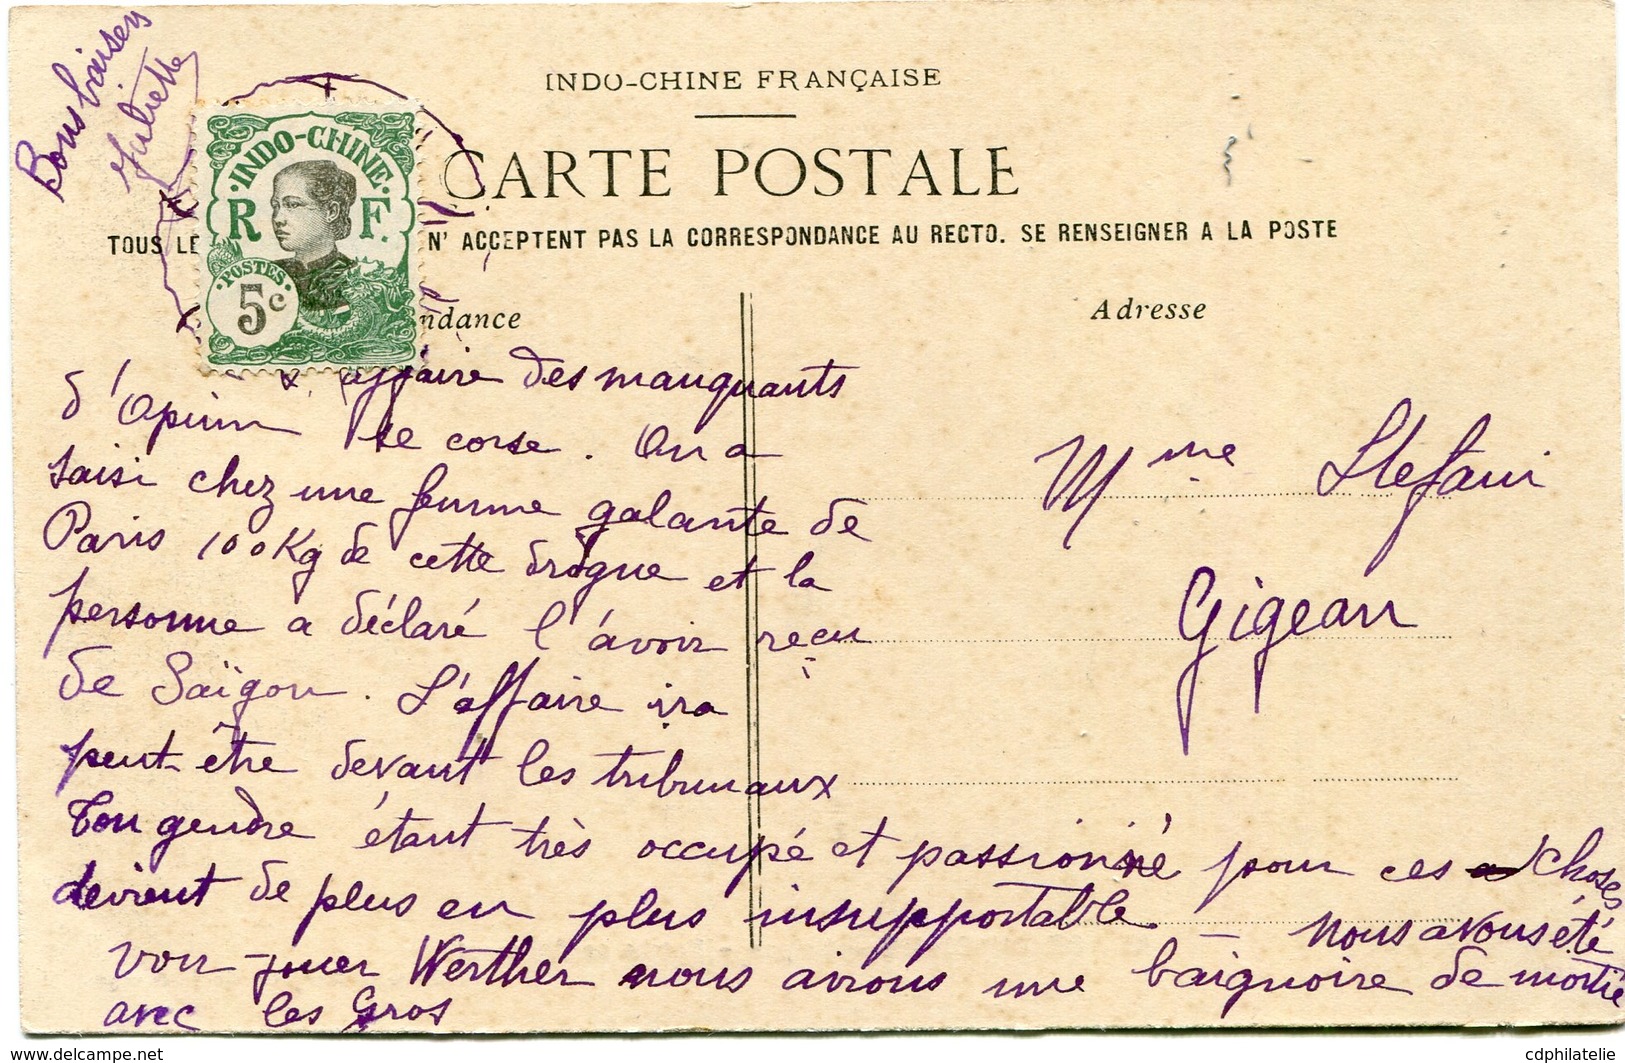 Bons baisers
Juliette
INDO-CHINE FRANÇAISE
INDO-CHINE
R F.
POSTES
5c
CARTE POSTALE
TOUS LE N' ACCEPTENT PAS LA CORRESPONDANCE AU RECTO. SE RENSEIGNER A LA POSTE
ndance
Adresse
affaire des manquants
d'Opium se corse. On a
saisi chez une femme galante de
Paris 100 Kg de cette drogue et la
personne a déclaré l'avoir reçu
de Saïgon. L'affaire ira
peut-être devant les tribunaux
Ton gendre étant très occupé et passionné pour ces choses
devient de plus en plus insupportable. - Nous avons été
voir jouer Werther nous avions une baignoire de moitié
avec les Gros
Mme Stefani
Gigean
delcampe.net
cdphilatelie